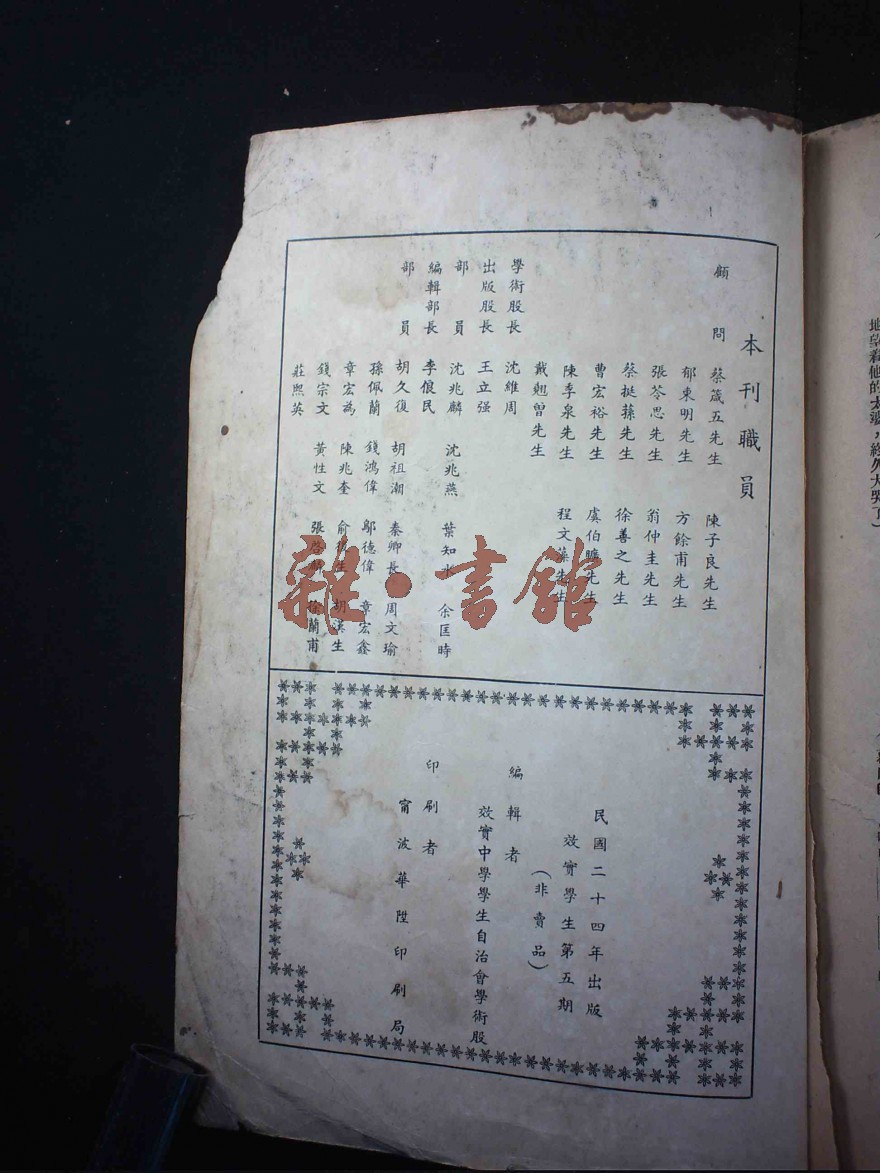 本刊職員
顧問 蔡箴五先生 陳子良先生
郁東明先生 方餘甫先生
張苓思先生 翁仲圭先生
蔡挺蓀先生 徐善之先生
曹宏裕先生 虞伯曠先生
陳季泉先生 程文藻先生
戴翹曾先生
學術股長 沈維周
出版股長 王立强
部員 沈兆麟 沈兆燕 葉知水 余匡時
編輯部長 李俍民
部員 胡久復 胡祖潮 秦卿長 周文瑜
孫佩蘭 錢鴻偉 鄔德偉 章宏鑫
章宏為 陳兆奎 俞 生 胡漢生
錢宗文 黃性文 張啓 徐蘭甫
莊熙英
民國二十四年出版
效實學生第五期
(非賣品)
編輯者
效實中學學生自治會學術股
印刷者
甯波華陞印刷局
雜·書館
地望着他的太婆，終久大哭了)